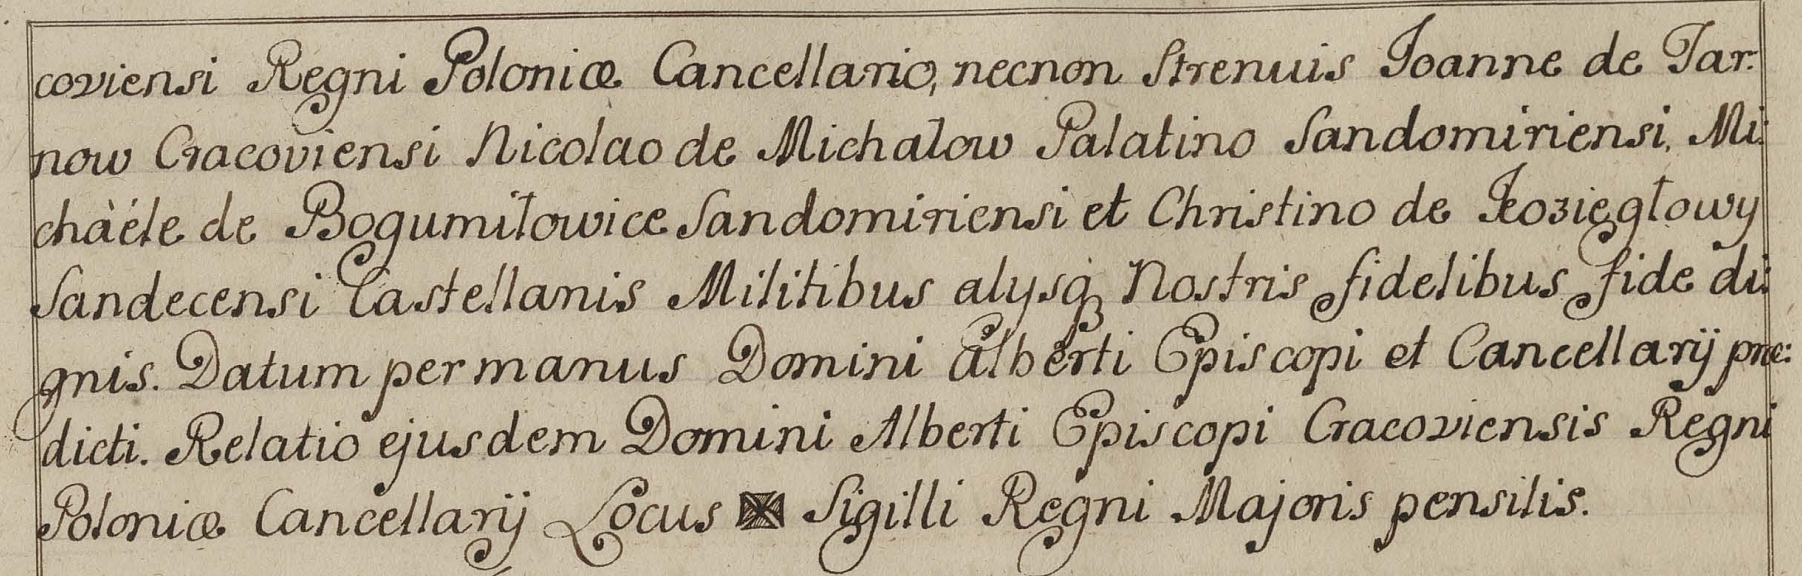 coviensi Regni Poloniæ Cancellario, necnon Strenuis Joanne de Tar:
now Cracoviensi Nicolao de Michałow Palatino Sandomiriensi, Mi:
chàéle de Bogumiłowice Sandomiriensi et Christino de Kozięgłowy
Sandecensi Castellanis Militibus alysq; Nostris fidelibus fide di:
gnis. Datum per manus Domini Alberti Episcopi et Cancellarij præ:
dicti. Relatio ejusdem Domini Alberti Episcopi Cracoviensis Regni
Poloniæ Cancellarij Locus Sigilli Regni Majoris pensilis.